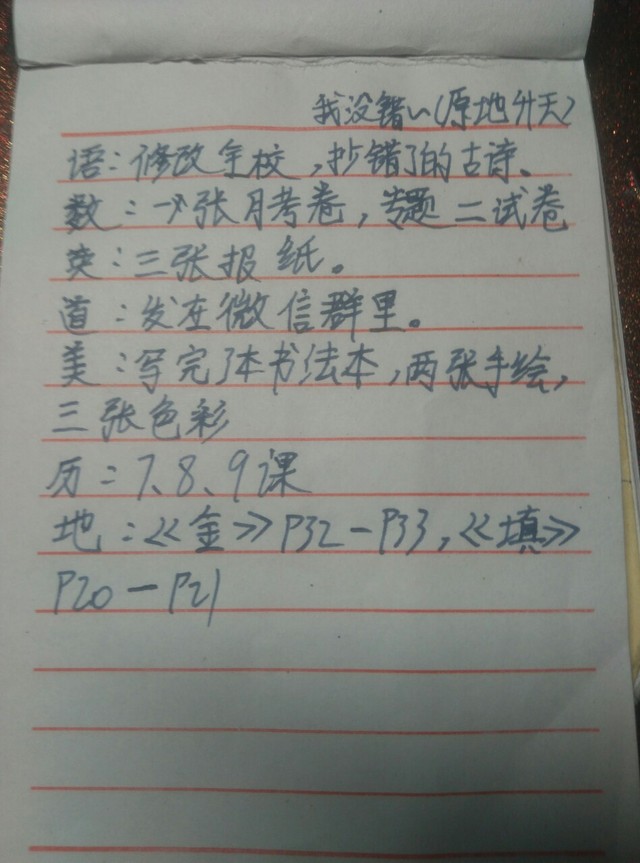 我没错~(原地升天)
语:修改全校,抄错了的古诗、
数:一张月考卷,专题二试卷
英:三张报纸。
道:发在微信群里。
美:写完了本书法本,两张手绘,
三张色彩
历:7、8、9课
地:<<金>>P32-P33,<<填>>
P20-P21